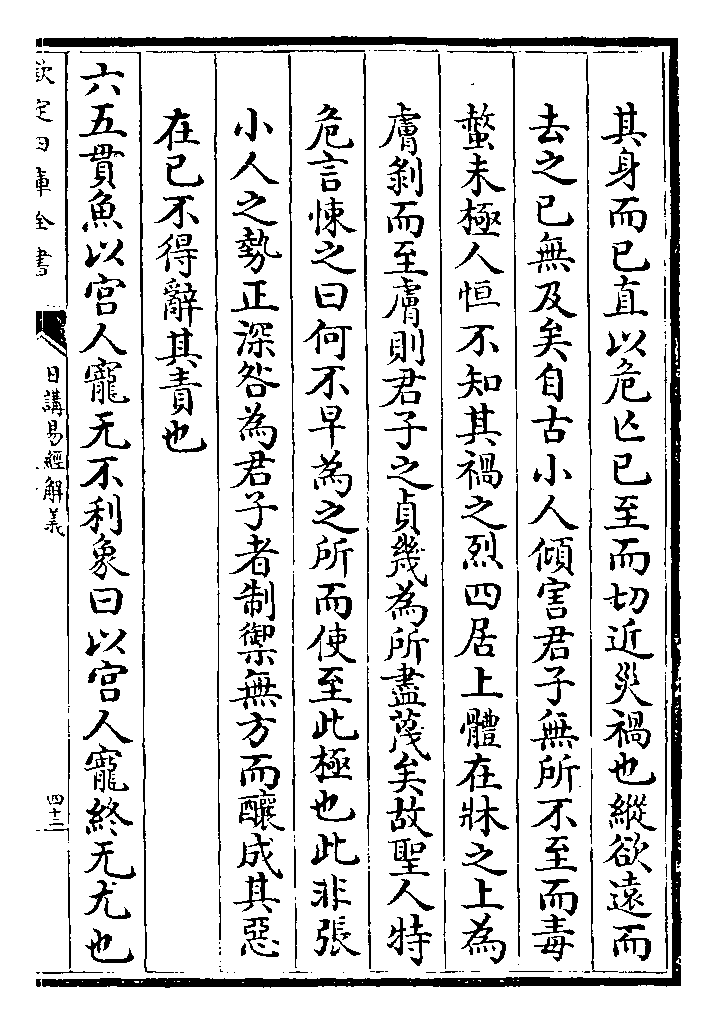 其身而已直以危亡已至而切近災禍也縱欲遠而
去之已無及矣自古小人傾害君子無所不至而毒
螫未極人恒不知其禍之烈四居上體在牀之上為
膚剝而至膚則君子之貞幾為所盡蔑矣故聖人特
危言悚之曰何不早為之所而使至此極也此非張
小人之勢正深咎為君子者制禦無方而釀成其惡
在已不得辭其責也
六五貫魚以宫人寵无不利象曰以宫人寵終无尤也
欽定四庫全書
日講易經解義
四十三